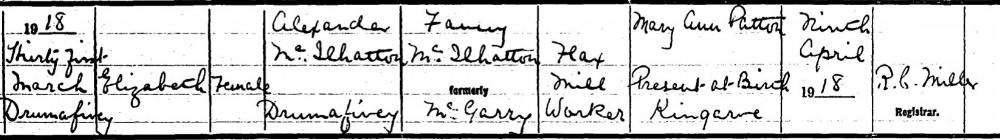 1918
Thirty first
March
Drumafivey
Elizabeth
Female
Alexander
Mc Ilhatton
Drumafivey
Fanny
Mc Ilhatton
formerly
Mc Garry
Flax
Mill
Worker
Mary Ann Patton
Present at Birth
Kingarve
Ninth
April
1918
R. C. Miller
Registrar.